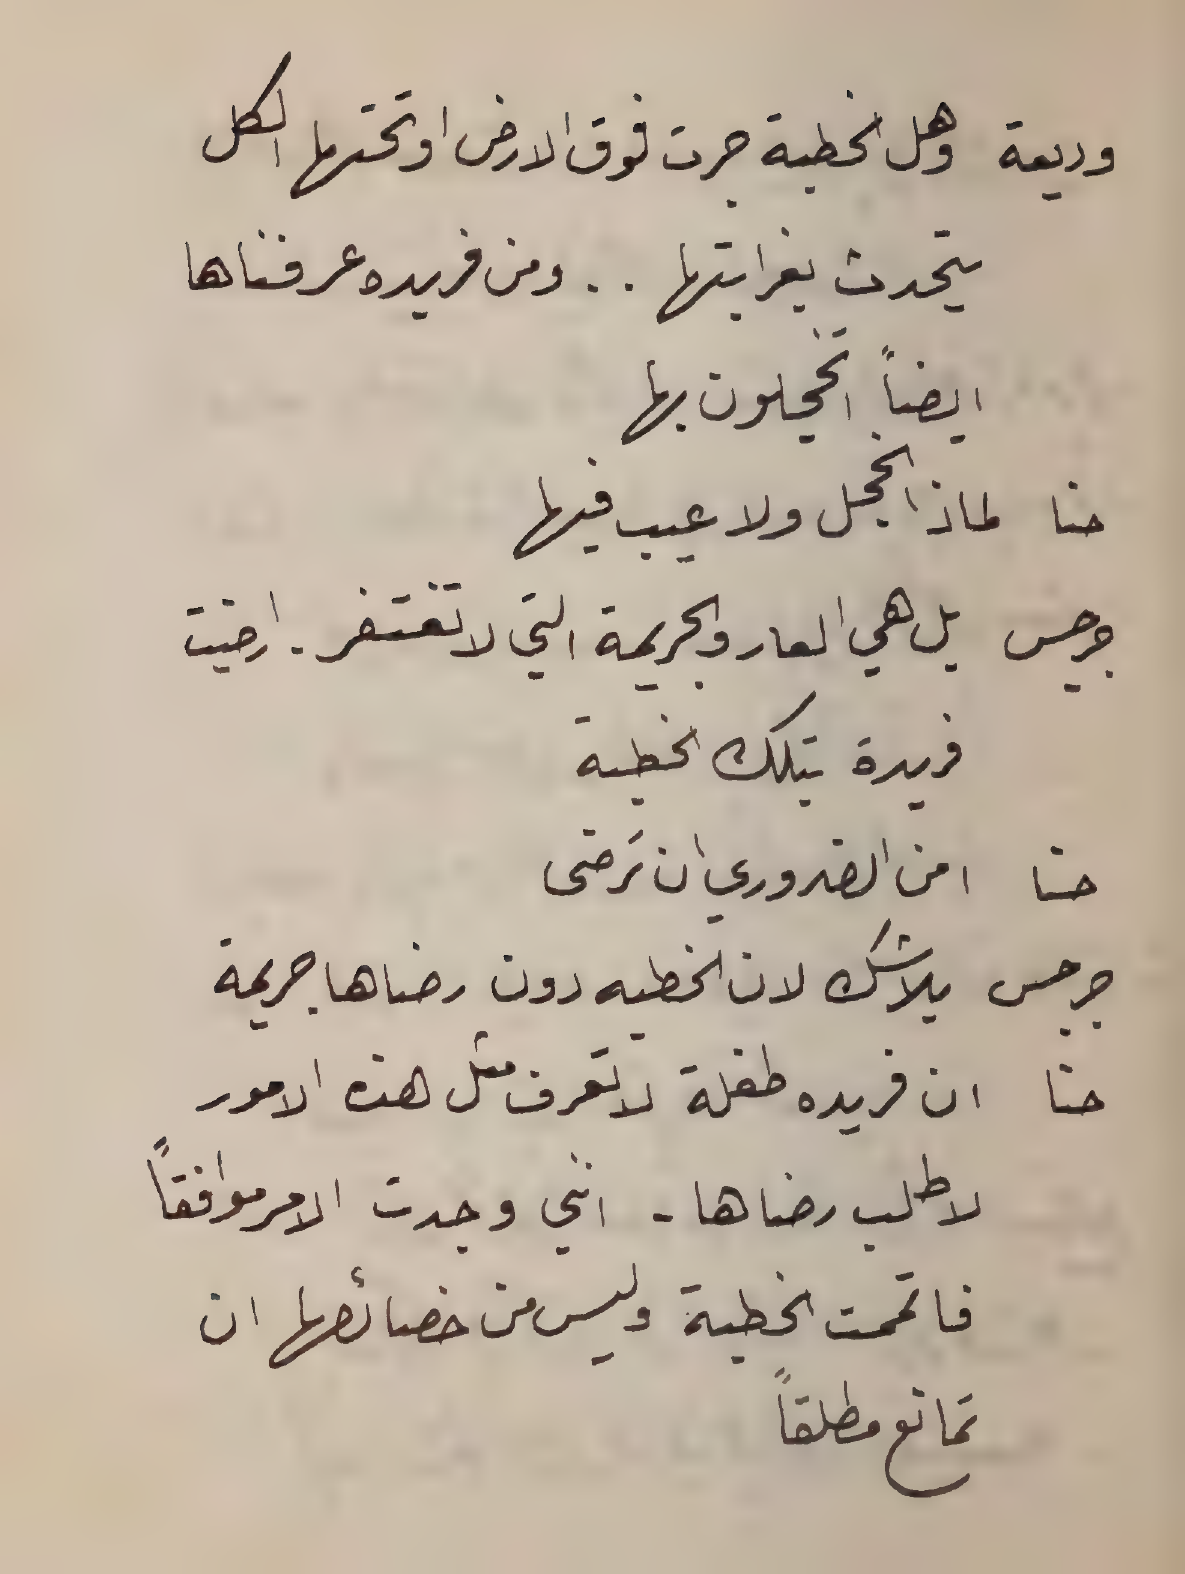 وديعة وهل الخطبة جرت فوق الارض او تحتها الكل
يتحدث بغرابتها .. ومن فريده عرفناها
ايضاً اتخجلون بها
حنا لماذا الخجل ولا عيب فيها
جرجس بل هي العار والجريمة التي لا تغتفر - ارضيت
فريدة بتلك الخطبة
حنا امن الضروري ان تَرضى
جرجس بلا شك لان الخطبه دون رضاها جريمة
حنا ان فريده طفلة لا تعرف مثل هذه الامور
لاطلب رضاها - انني وجدت الامر موافقاً
فاتممت الخطبة وليس من خصائصها ان
تمانع مطلقاً